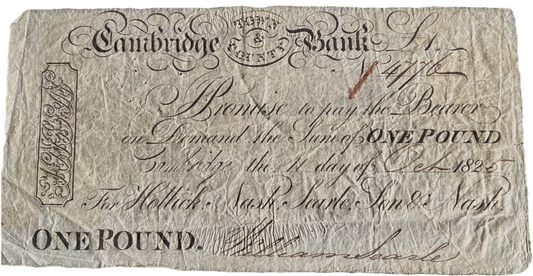 Cambridge TOWN & COUNTY Bank £1.
4776
I Promise to pay the Bearer
on Demand the Sum of ONE POUND
Cambridge the 11 day of Oct. 1825
For Hollick, Nash, Searle, Son & Nash
ONE POUND. William Searle